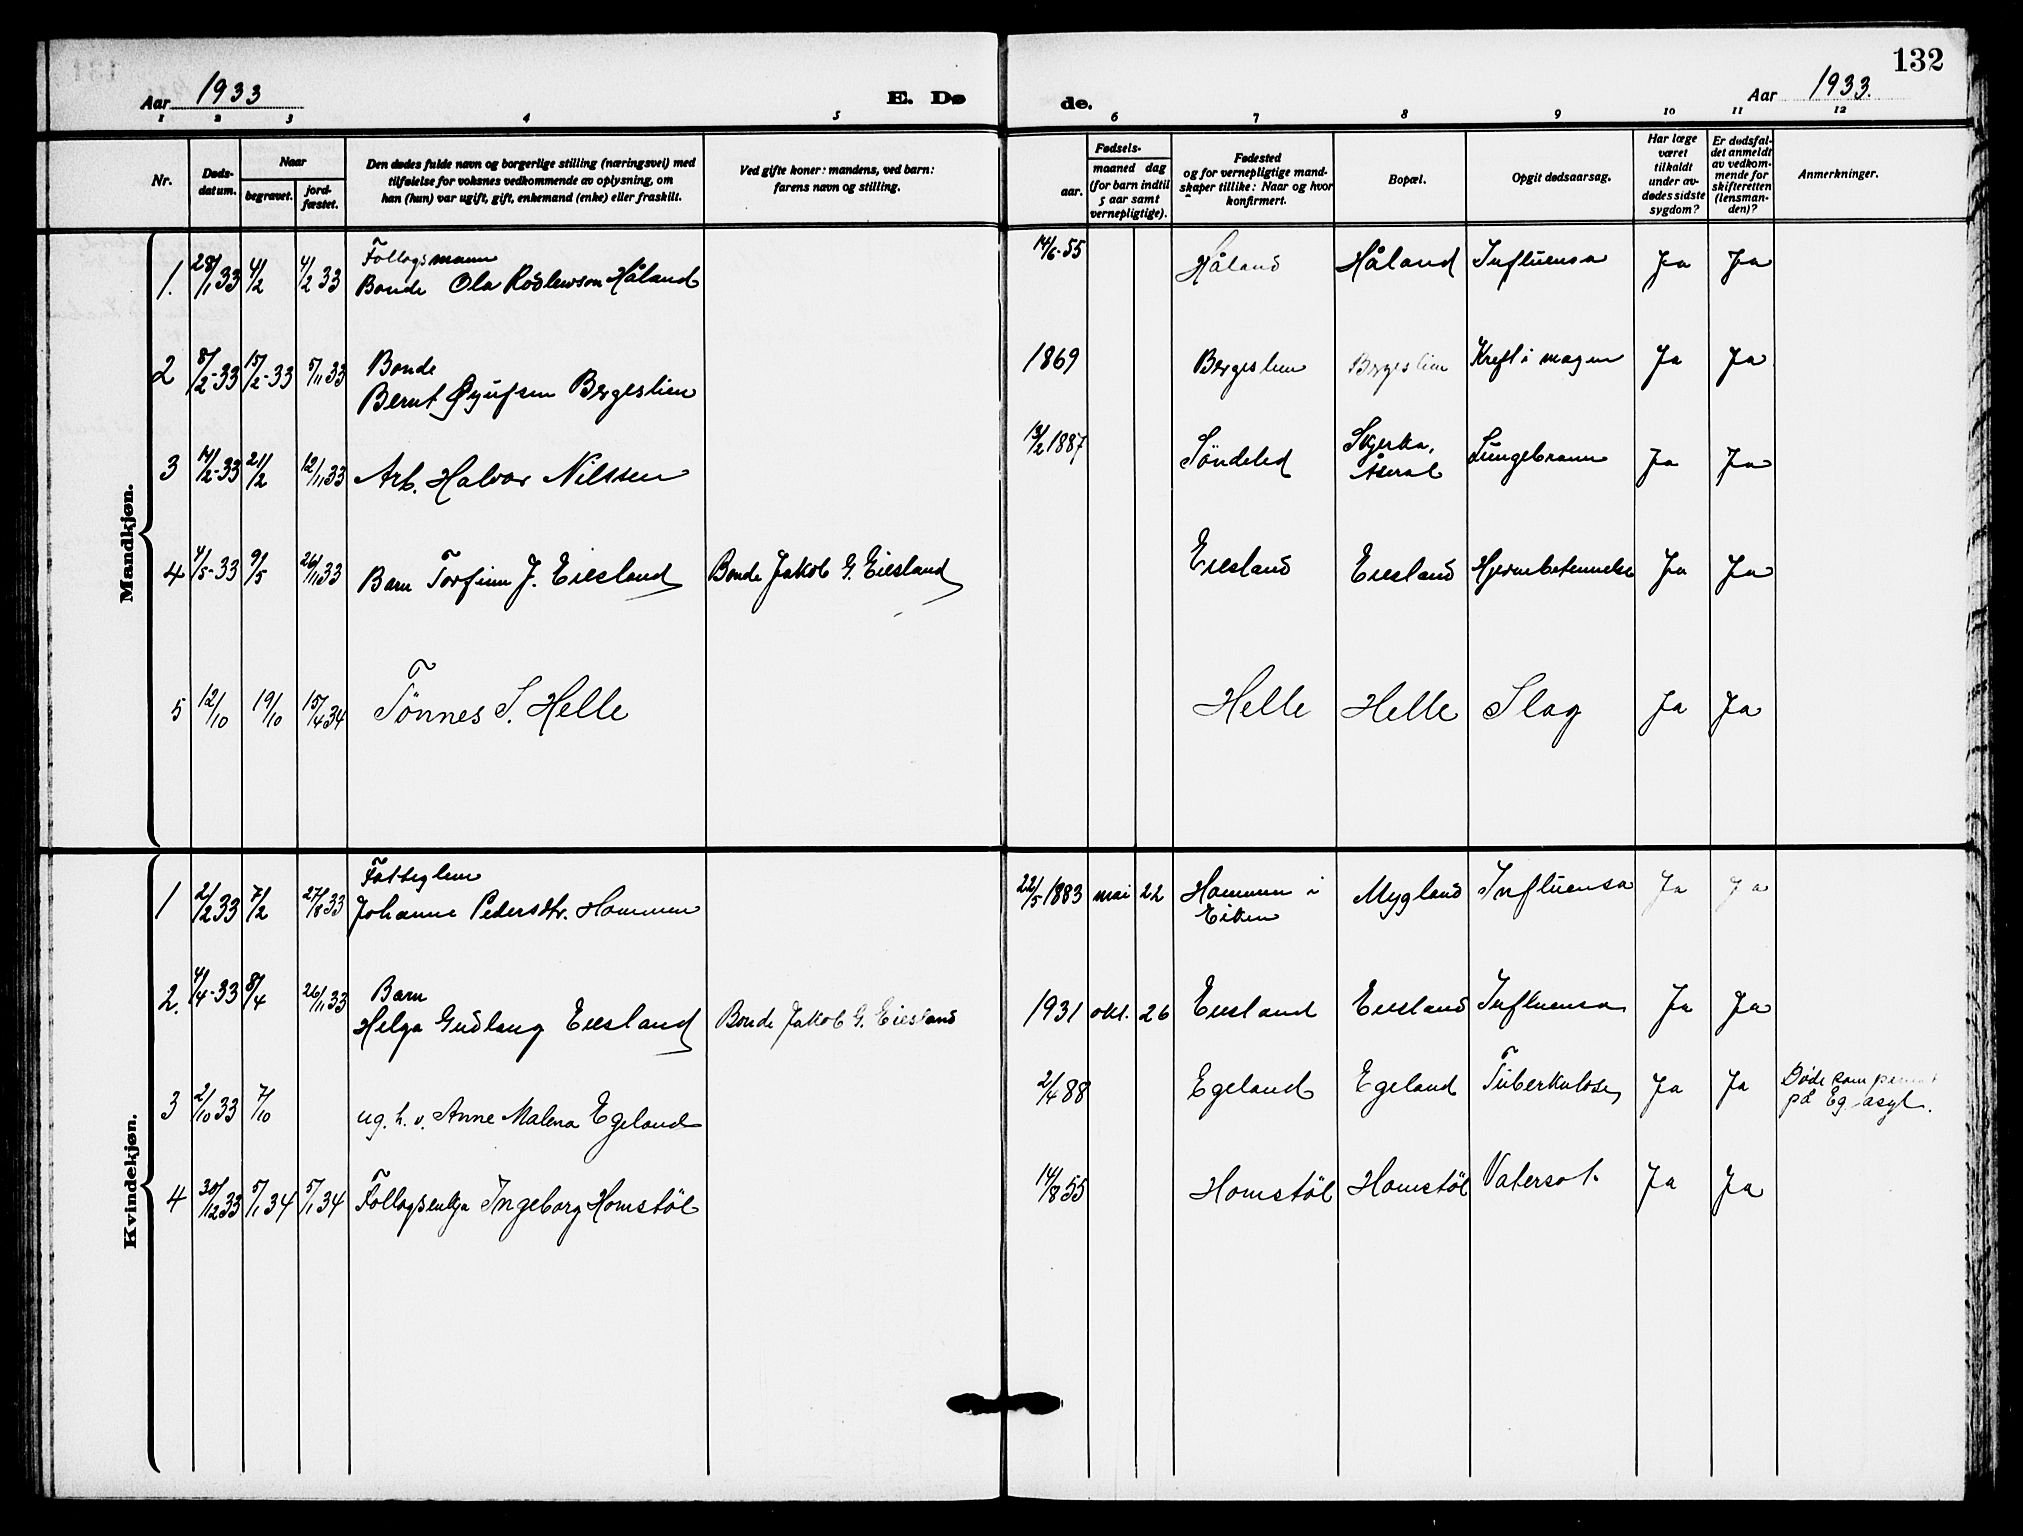 132
Aar 1933
E. Dø
de.
Aar 1933.
1 2 3 4 5 6 7 8 9 10 11 12
Nr.
Døds-
datum.
Naar
begravet.
jord-
fæstet.
Den dødes fulde navn og borgerlige stilling (næringsvei) med
tilføielse for voksnes vedkommende av oplysning, om
han (hun) var ugift, gift, enkemand (enke) eller fraskilt.
Ved gifte koner: mandens, ved barn:
farens navn og stilling.
Fødsels-
aar.
maaned dag
(for barn indtil
5 aar samt
vernepligtige).
Fødested
og for vernepligtige mand-
skaper tillike: Naar og hvor
konfirmert.
Bopæl.
Opgit dødsaarsag.
Har læge
været
tilkaldt
under av-
dødes sidste
sygdom?
Er dødsfal-
det anmeldt
av vedkom-
mende for
skifteretten
(lensman-
den)?
Anmerkninger.
Mandkjøn.
Follogsmann
1. 28/1 33 4/2 4/2 33 Bonde Ola Roslewson Håland 14/6-55 Håland Håland Influensa Ja Ja
2 8/2-33 15/2-33 5/11 33 Bonde
Bernt Bergeslien 1869 Bergeslien Bergeslien Kreft i magen Ja Ja
3 14/2-33 21/2 12/11 33 Arb. Halvor Nilssen 13/2 1887 Söndeled Skjerka,
Åseral Lungebrann Ja Ja
4 4/5-33 9/5 26/11 33 Barn Torfinn J. Eiesland Bonde Jakob G. Eiesland Eiesland Eiesland Hjernebetennelse Ja Ja
5 12/10 19/10 15/4 34 Tönnes S. Helle Helle Helle Slag Ja Ja
Kvindekjøn.
Fatteglem
1 2/2 33 7/2 27/8 33 Johanne Pedersdtr. Hommen 22/5 1883 mai 22 Hommen i
Eiken Mygland Influensa Ja Ja
2. 4/4-33 8/4 26/11 33 Barn
Helga Gudlaug Eiesland Bonde Jakob G. Eiesland 1931 okt. 26 Eiesland Eiesland Influensa Ja Ja
3 2/10 33 7/10 ug. h. v. Anne Malena Egeland 2/4 88 Egeland Egeland Tuberkulose Ja Ja Döde som
på Eg asyl.
4 30/12 33 5/1 34 5/1 34 Follogsenkja Ingeborg Homstöl 14/8 55 Homstöl Homstöl Vatersot. Ja Ja